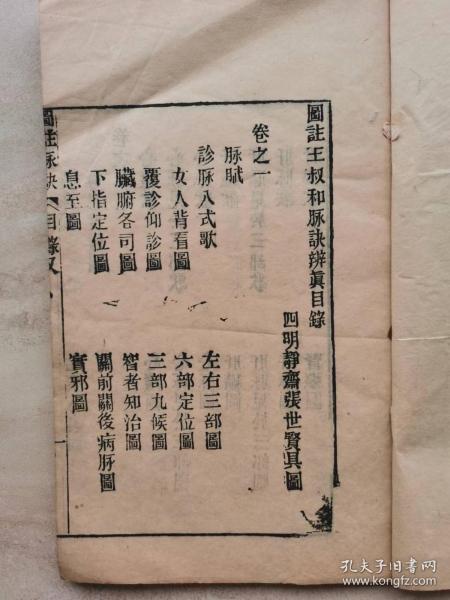 圖註王叔和脉訣辨眞目錄
四明靜齋張世賢具圖
卷之一
脉賦
診脉入式歌
左右三部圖
女人背看圖
六部定位圖
覆診仰診圖
三部九候圖
臟腑各司圖
智者知治圖
下指定位圖
關前關後病脉圖
息至圖
實邪圖
圖註脉訣
目錄
孔夫子旧书网
www.kongfz.com